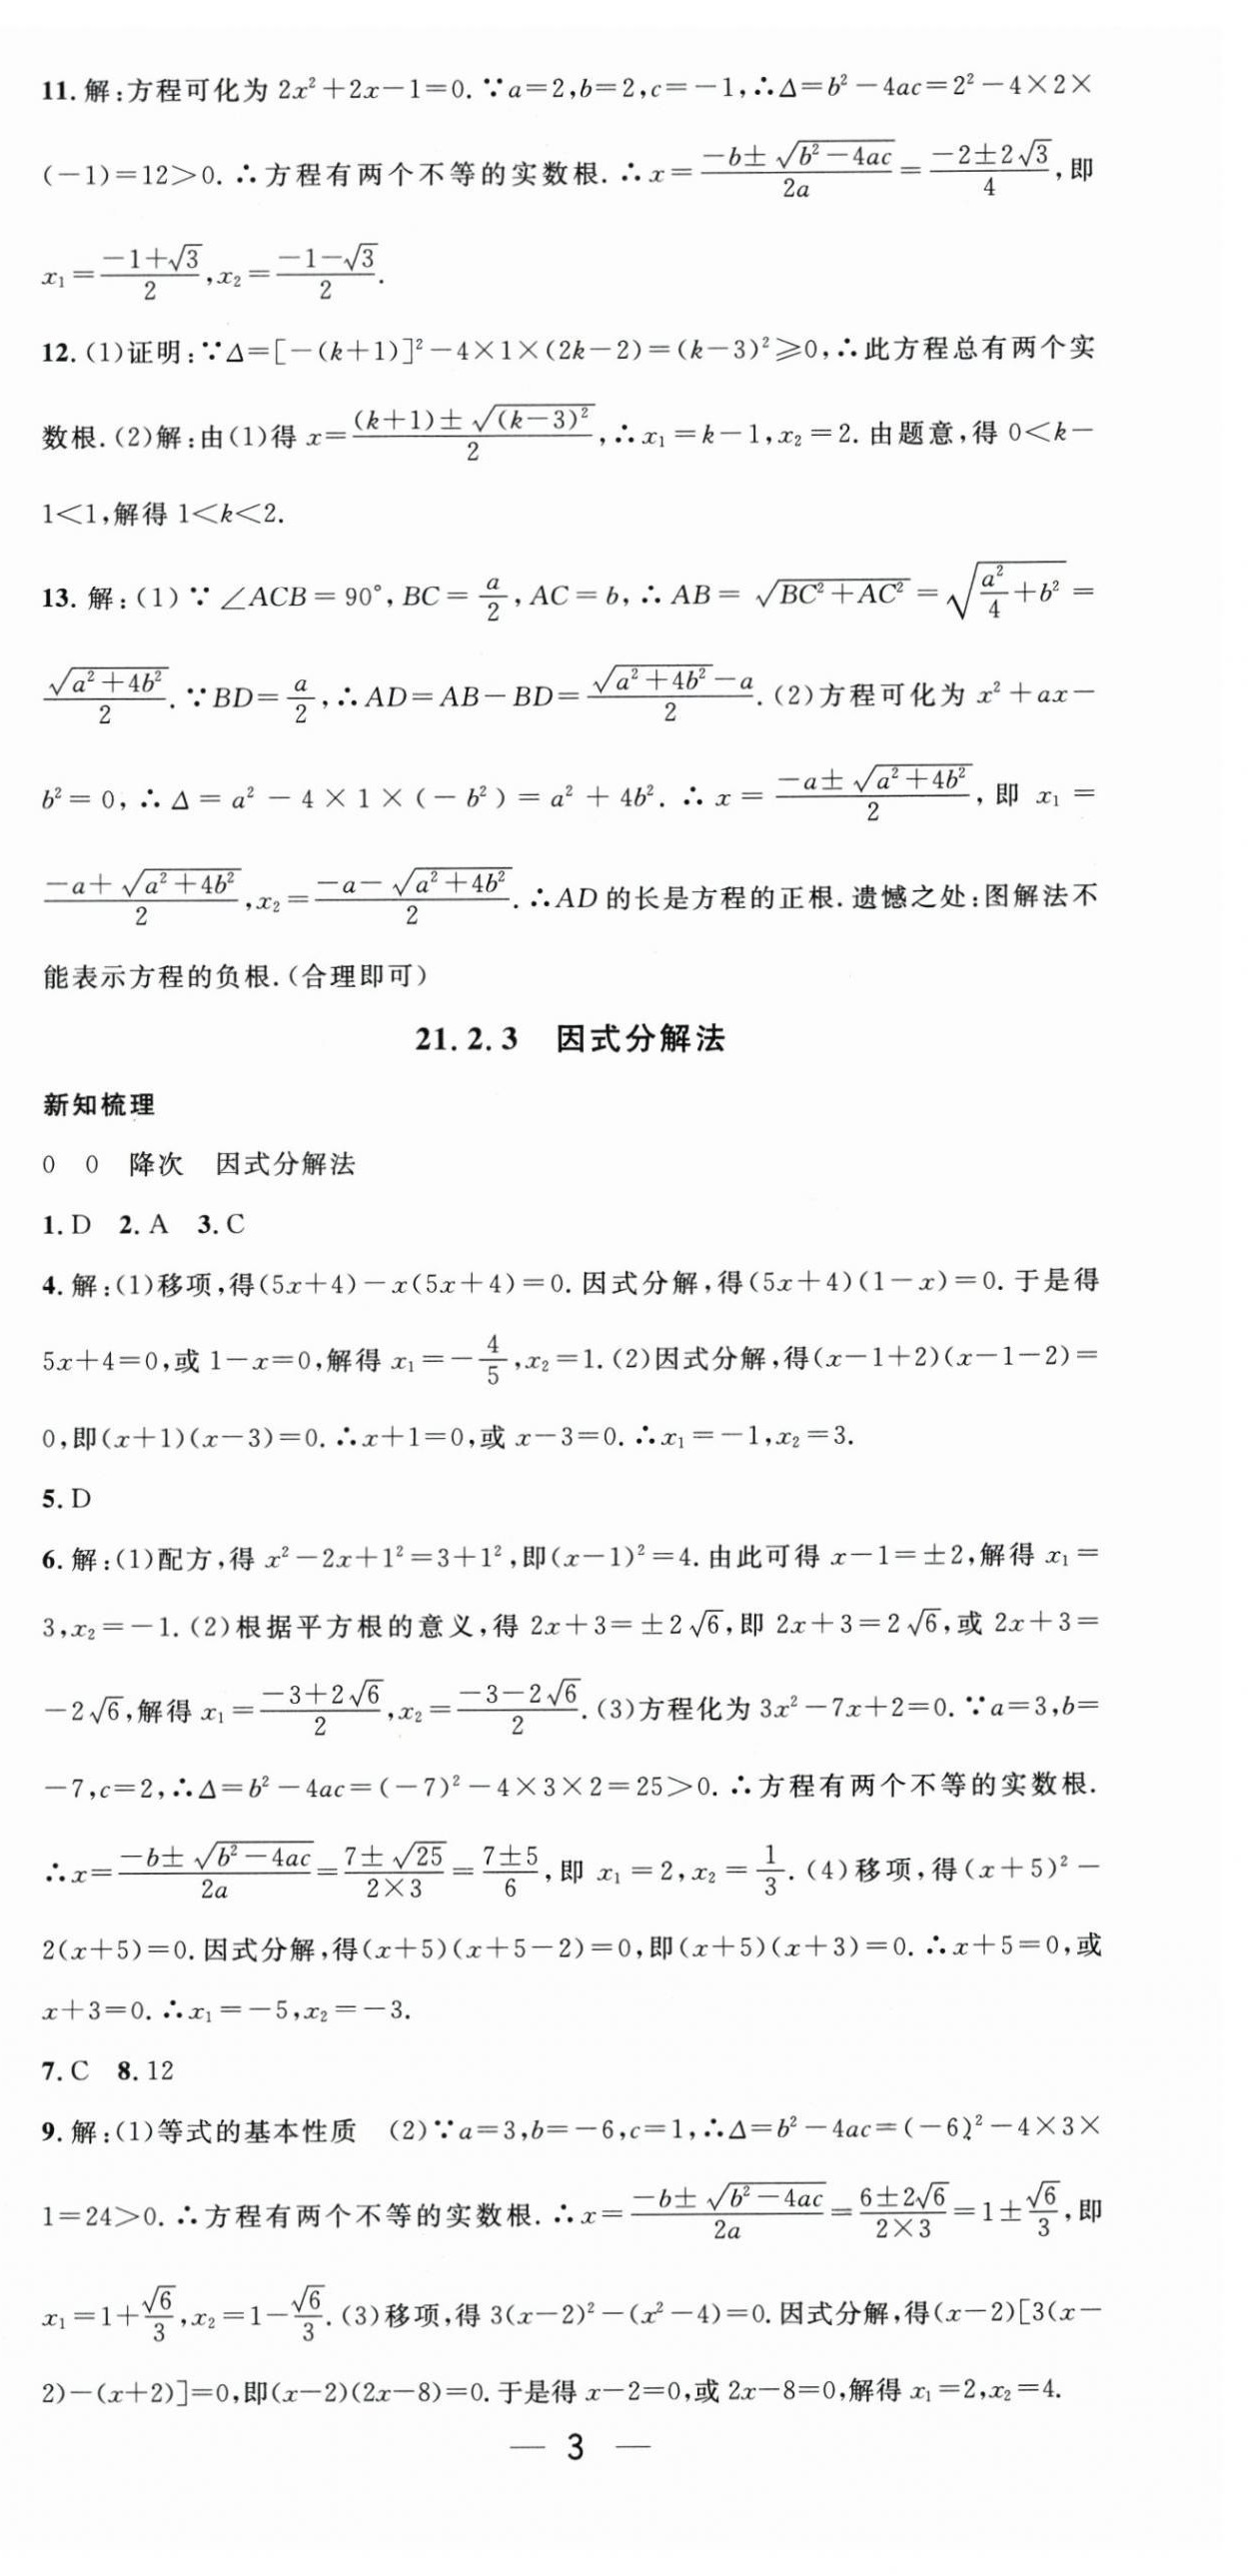 11. 解:方程可化为 2x²+2x−1=0. ∵a=2,b=2,c=−1,∴Δ=b²−4ac=2²−4×2×
(−1)=12>0. ∴方程有两个不等的实数根. ∴x=\frac{−b±\sqrt{b²−4ac}}{2a}=\frac{−2±2\sqrt{3}}{4},即
x₁=\frac{−1+\sqrt{3}}{2},x₂=\frac{−1−\sqrt{3}}{2}.
12. (1)证明:∵Δ=[−(k+1)]²−4×1×(2k−2)=(k−3)²⩾0,∴此方程总有两个实
数根.(2)解:由(1)得 x=\frac{(k+1)±\sqrt{(k−3)²}}{2},∴x₁=k−1,x₂=2. 由题意,得 0<k−
1<1,解得 1<k<2.
13. 解:(1)∵∠ACB=90°,BC=\frac{a}{2},AC=b,∴AB=\sqrt{BC²+AC²}=\sqrt{\frac{a²}{4}+b²}=
\frac{\sqrt{a²+4b²}}{2}. ∵BD=\frac{a}{2},∴AD=AB−BD=\frac{\sqrt{a²+4b²}−a}{2}.(2)方程可化为 x²+ax−
b²=0,∴Δ=a²−4×1×(−b²)=a²+4b². ∴x=\frac{−a±\sqrt{a²+4b²}}{2},即 x₁=
\frac{−a+\sqrt{a²+4b²}}{2},x₂=\frac{−a−\sqrt{a²+4b²}}{2}. ∴AD 的长是方程的正根. 遗憾之处:图解法不
能表示方程的负根.(合理即可)
21. 2. 3 因式分解法
新知梳理
0 0 降次 因式分解法
1. D 2. A 3. C
4. 解:(1)移项,得(5x+4)−x(5x+4)=0. 因式分解,得(5x+4)(1−x)=0. 于是得
5x+4=0,或 1−x=0,解得 x₁=−\frac{4}{5},x₂=1.(2)因式分解,得(x−1+2)(x−1−2)=
0,即(x+1)(x−3)=0. ∴x+1=0,或 x−3=0. ∴x₁=−1,x₂=3.
5. D
6. 解:(1)配方,得 x²−2x+1²=3+1²,即(x−1)²=4. 由此可得 x−1=±2,解得 x₁=
3,x₂=−1.(2)根据平方根的意义,得 2x+3=±2\sqrt{6},即 2x+3=2\sqrt{6},或 2x+3=
−2\sqrt{6},解得 x₁=\frac{−3+2\sqrt{6}}{2},x₂=\frac{−3−2\sqrt{6}}{2}.(3)方程化为 3x²−7x+2=0. ∵a=3,b=
−7,c=2,∴Δ=b²−4ac=(−7)²−4×3×2=25>0. ∴方程有两个不等的实数根.
∴x=\frac{−b±\sqrt{b²−4ac}}{2a}=\frac{7±\sqrt{25}}{2×3}=\frac{7±5}{6},即 x₁=2,x₂=\frac{1}{3}.(4)移项,得(x+5)²−
2(x+5)=0. 因式分解,得(x+5)(x+5−2)=0,即(x+5)(x+3)=0. ∴x+5=0,或
x+3=0. ∴x₁=−5,x₂=−3.
7. C 8. 12
9. 解:(1)等式的基本性质 (2)∵a=3,b=−6,c=1,∴Δ=b²−4ac=(−6)²−4×3×
1=24>0. ∴方程有两个不等的实数根. ∴x=\frac{−b±\sqrt{b²−4ac}}{2a}=\frac{6±2\sqrt{6}}{2×3}=1±\frac{\sqrt{6}}{3},即
x₁=1+\frac{\sqrt{6}}{3},x₂=1−\frac{\sqrt{6}}{3}.(3)移项,得 3(x−2)²−(x²−4)=0. 因式分解,得(x−2)[3(x−
2)−(x+2)]=0,即(x−2)(2x−8)=0. 于是得 x−2=0,或 2x−8=0,解得 x₁=2,x₂=4.
— 3 —